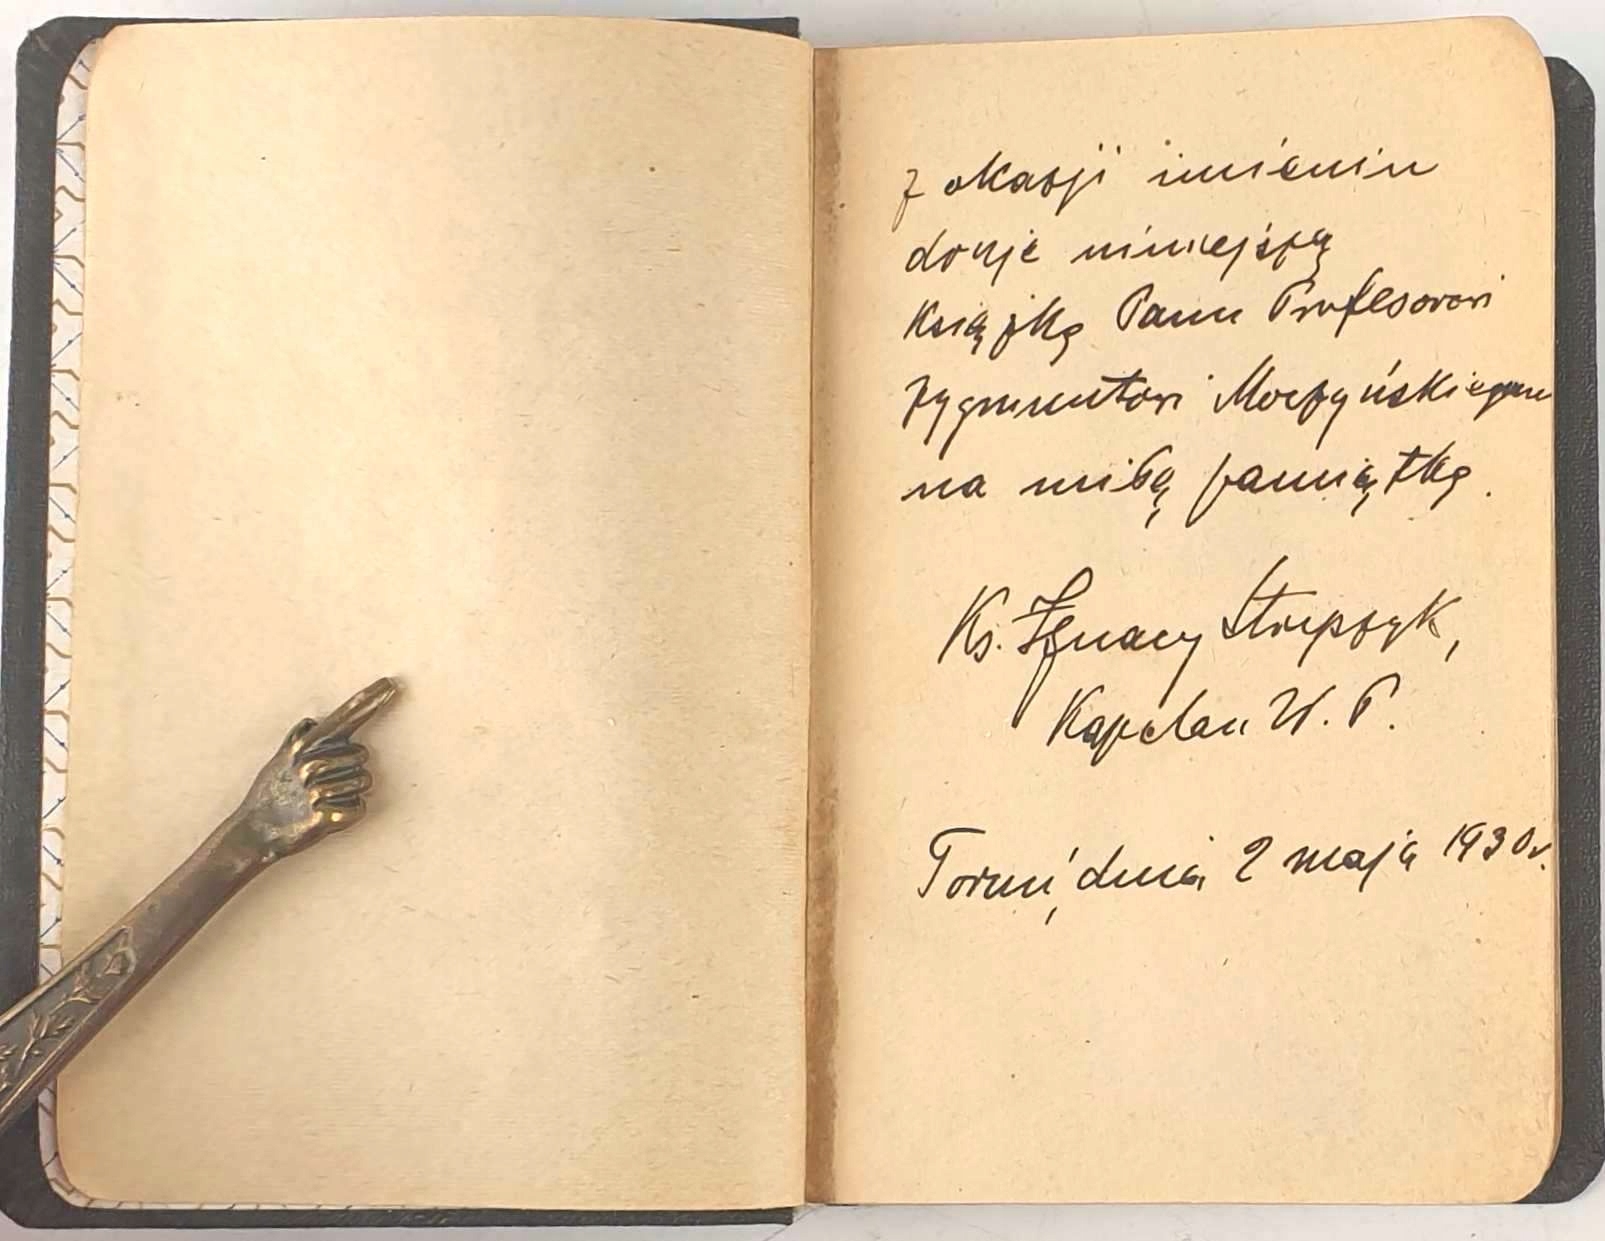 Z okazji imienin
daruję niniejszą
książkę Panu Profesorowi
Zygmuntowi Moczyńskiemu
na miłą pamiątkę.
Ks. Ignacy
Kapelan W. P.
Toruń, dnia 2 maja 1930 r.